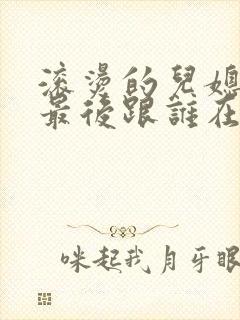 滾燙的兒媳
最後跟誰在
咪起我月牙眼